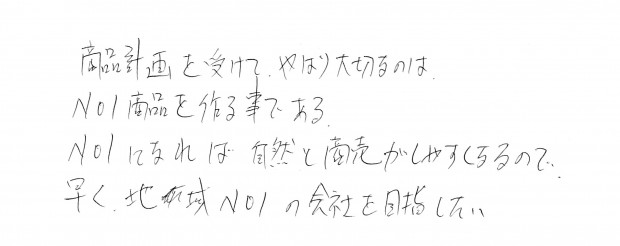 商品計画を受けて、やはり大切なのは、
NO1商品を作る事である。
NO1になれば自然と商売がしやすくなるので、
早く、地域NO1の会社を目指したい